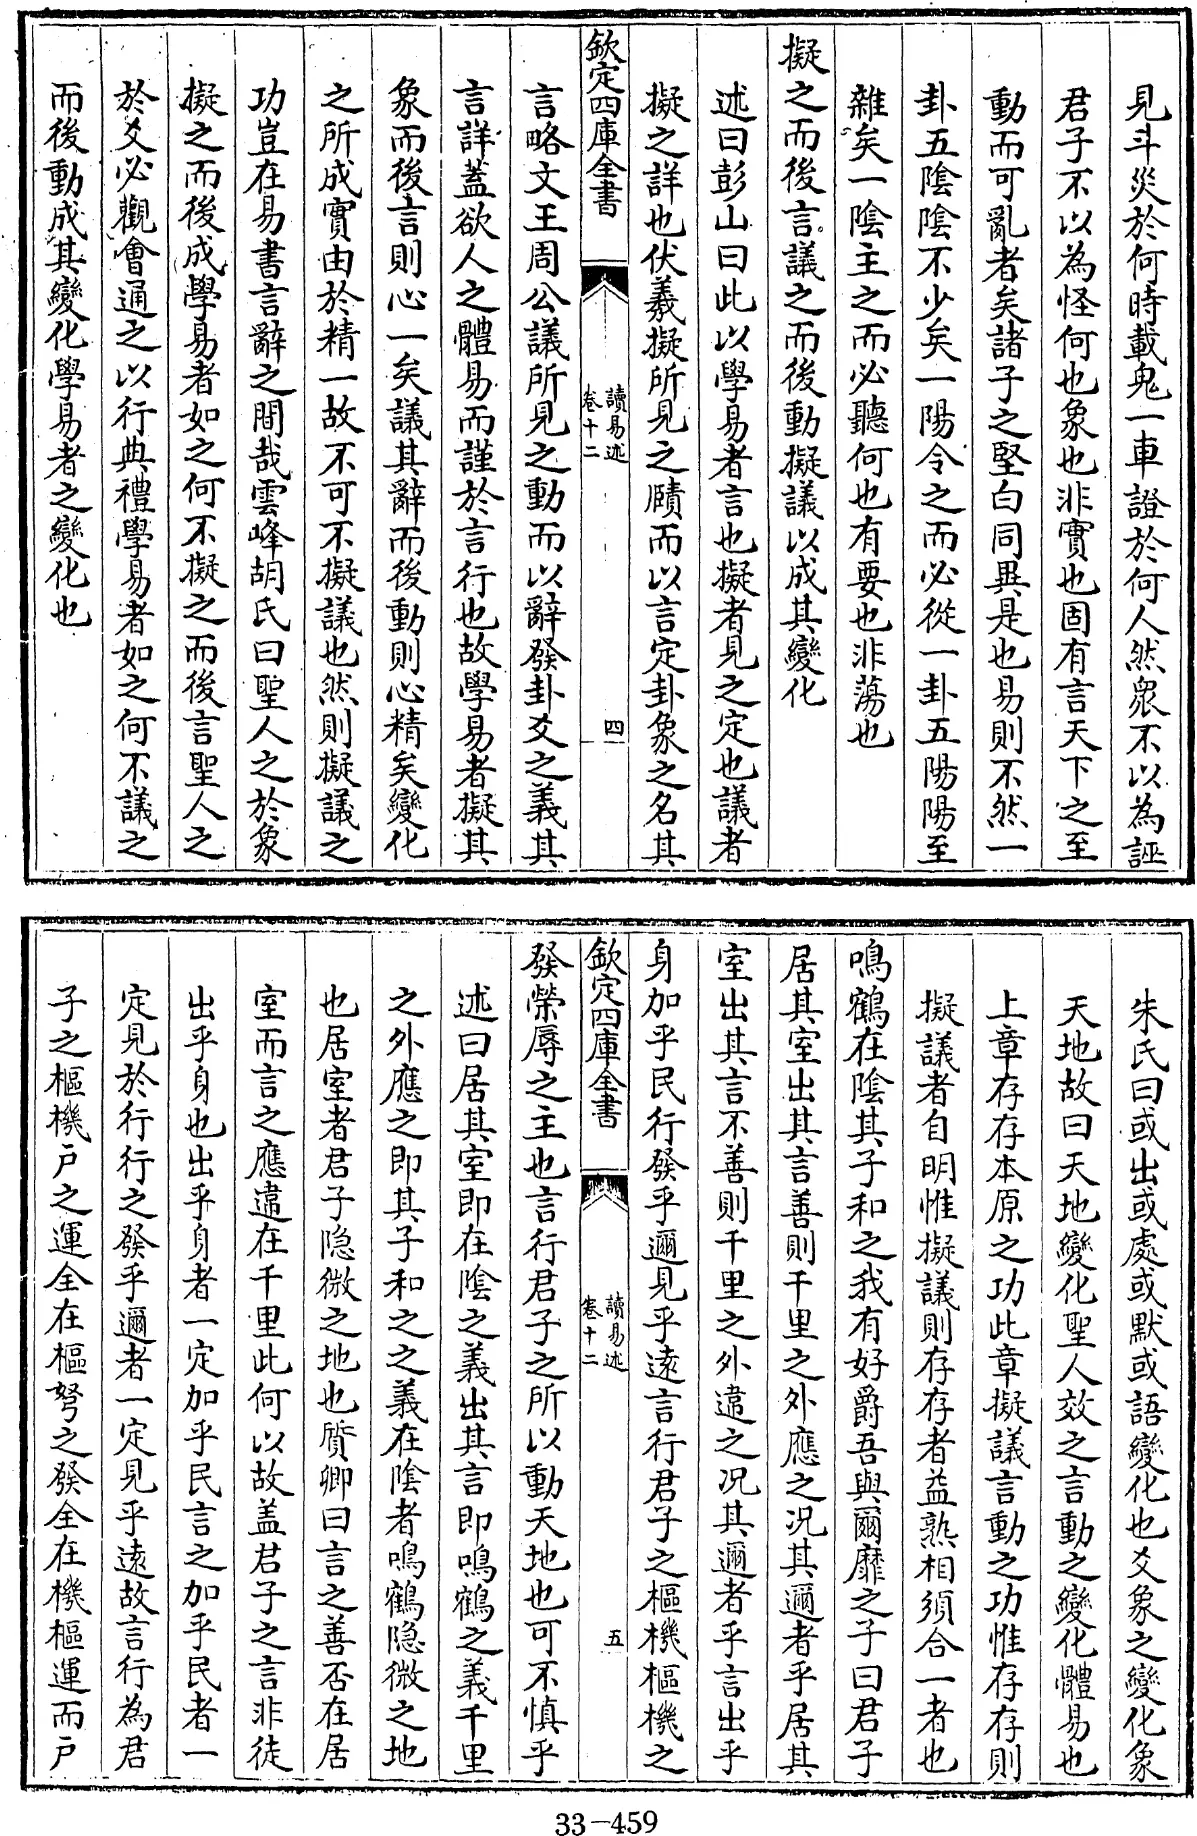 見斗災於何時載鬼一車證於何人然衆不以為誣
君子不以為怪何也象也非實也固有言天下之至
動而可亂者矣諸子之堅白同異是也易則不然一
卦五陰陰不少矣一陽令之而必從一卦五陽陽至
雜矣一陰主之而必聽何也有要也非蕩也
擬之而後言議之而後動擬議以成其變化
述曰彭山曰此以學易者言也擬者見之定也議者
擬之詳也伏羲擬所見之賾而以言定卦象之名其
欽定四庫全書
讀易述
卷十二
四
言略文王周公議所見之動而以辭發卦爻之義其
言詳蓋欲人之體易而謹於言行也故學易者擬其
象而後言則心一矣議其辭而後動則心精矣變化
之所成實由於精一故不可不擬議也然則擬議之
功豈在易書言辭之間哉雲峰胡氏曰聖人之於象
擬之而後成學易者如之何不擬之而後言聖人之
於爻必觀會通之以行典禮學易者如之何不議之
而後動成其變化學易者之變化也
朱氏曰或出或處或默或語變化也爻象之變化象
天地故曰天地變化聖人效之言動之變化體易也
上章存存本原之功此章擬議言動之功惟存存則
擬議者自明惟擬議則存存者益熟相須合一者也
鳴鶴在陰其子和之我有好爵吾與爾靡之子曰君子
居其室出其言善則千里之外應之况其邇者乎居其
室出其言不善則千里之外違之况其邇者乎言出乎
身加乎民行發乎邇見乎遠言行君子之樞機樞機之
欽定四庫全書
讀易述
卷十二
五
發榮辱之主也言行君子之所以動天地也可不慎乎
述曰居其室即在陰之義出其言即鳴鶴之義千里
之外應之即其子和之之義在陰者鳴鶴隐微之地
也居室者君子隐微之地也質卿曰言之善否在居
室而言之應違在千里此何以故盖君子之言非徒
出乎身也出乎身者一定加乎民言之加乎民者一
定見於行行之發乎邇者一定見乎遠故言行為君
子之樞機戶之運全在樞弩之發全在機樞運而戶
33-459